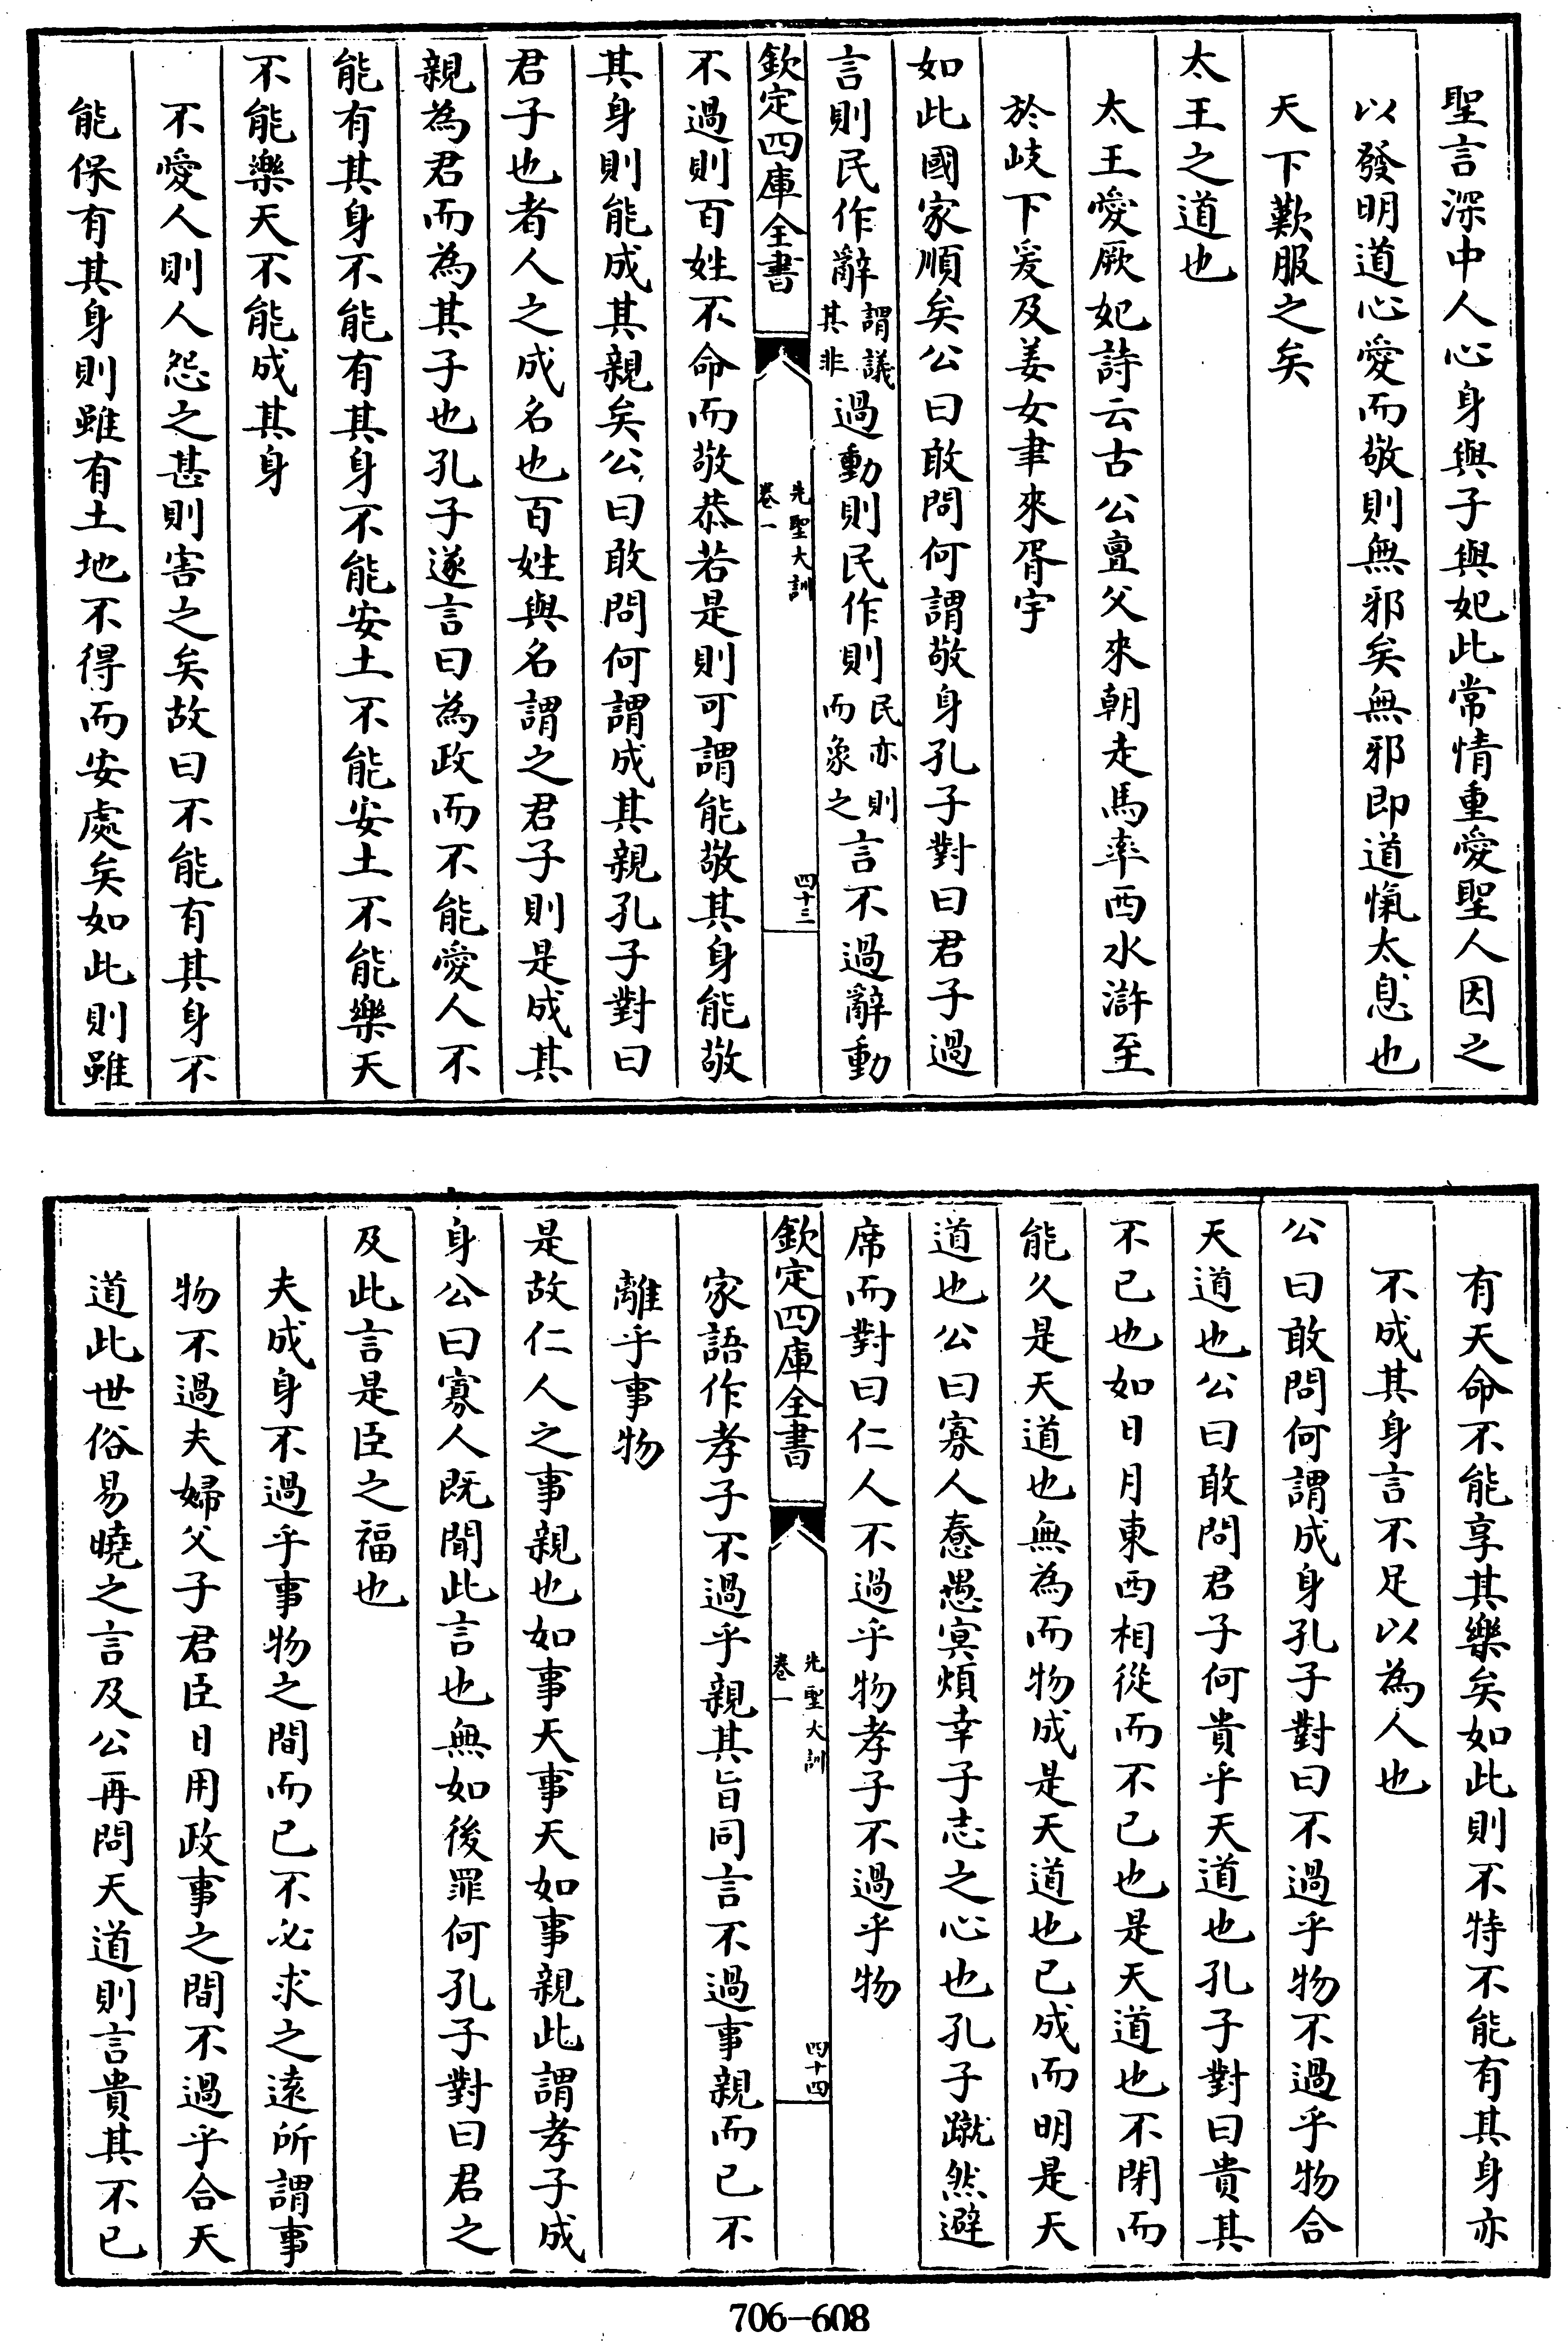 聖言深中人心身與子與妃此常情重愛聖人因之
以發明道心愛而敬則無邪矣無邪即道愾太息也
天下歎服之矣
太王之道也
太王愛厥妃詩云古公亶父來朝走馬率西水滸至
於岐下爰及姜女聿來胥宇
如此國家順矣公曰敢問何謂敬身孔子對曰君子過
言則民作辭謂議其非過動則民作則民亦則而象之言不過辭動
欽定四庫全書
先聖大訓
卷一
四十三
不過則百姓不命而敬恭若是則可謂能敬其身能敬
其身則能成其親矣公曰敢問何謂成其親孔子對曰
君子也者人之成名也百姓與名謂之君子則是成其
親為君而為其子也孔子遂言曰為政而不能愛人不
能有其身不能有其身不能安土不能安土不能樂天
不能樂天不能成其身
不愛人則人怨之甚則害之矣故曰不能有其身不
能保有其身則雖有土地不得而安處矣如此則雖
有天命不能享其樂矣如此則不特不能有其身亦
不成其身言不足以為人也
公曰敢問何謂成身孔子對曰不過乎物不過乎物合
天道也公曰敢問君子何貴乎天道也孔子對曰貴其
不已也如日月東西相從而不已也是天道也不閉而
能久是天道也無為而物成是天道也已成而明是天
道也公曰寡人惷愚冥煩幸子志之心也孔子蹴然避
席而對曰仁人不過乎物孝子不過乎物
欽定四庫全書
先聖大訓
卷一
四十四
家語作孝子不過乎親其旨同言不過事親而已不
離乎事物
是故仁人之事親也如事天事天如事親此謂孝子成
身公曰寡人既聞此言也無如後罪何孔子對曰君之
及此言是臣之福也
夫成身不過乎事物之間而已不必求之遠所謂事
物不過夫婦父子君臣日用政事之間不過乎合天
道此世俗易曉之言及公再問天道則言貴其不已
706-608